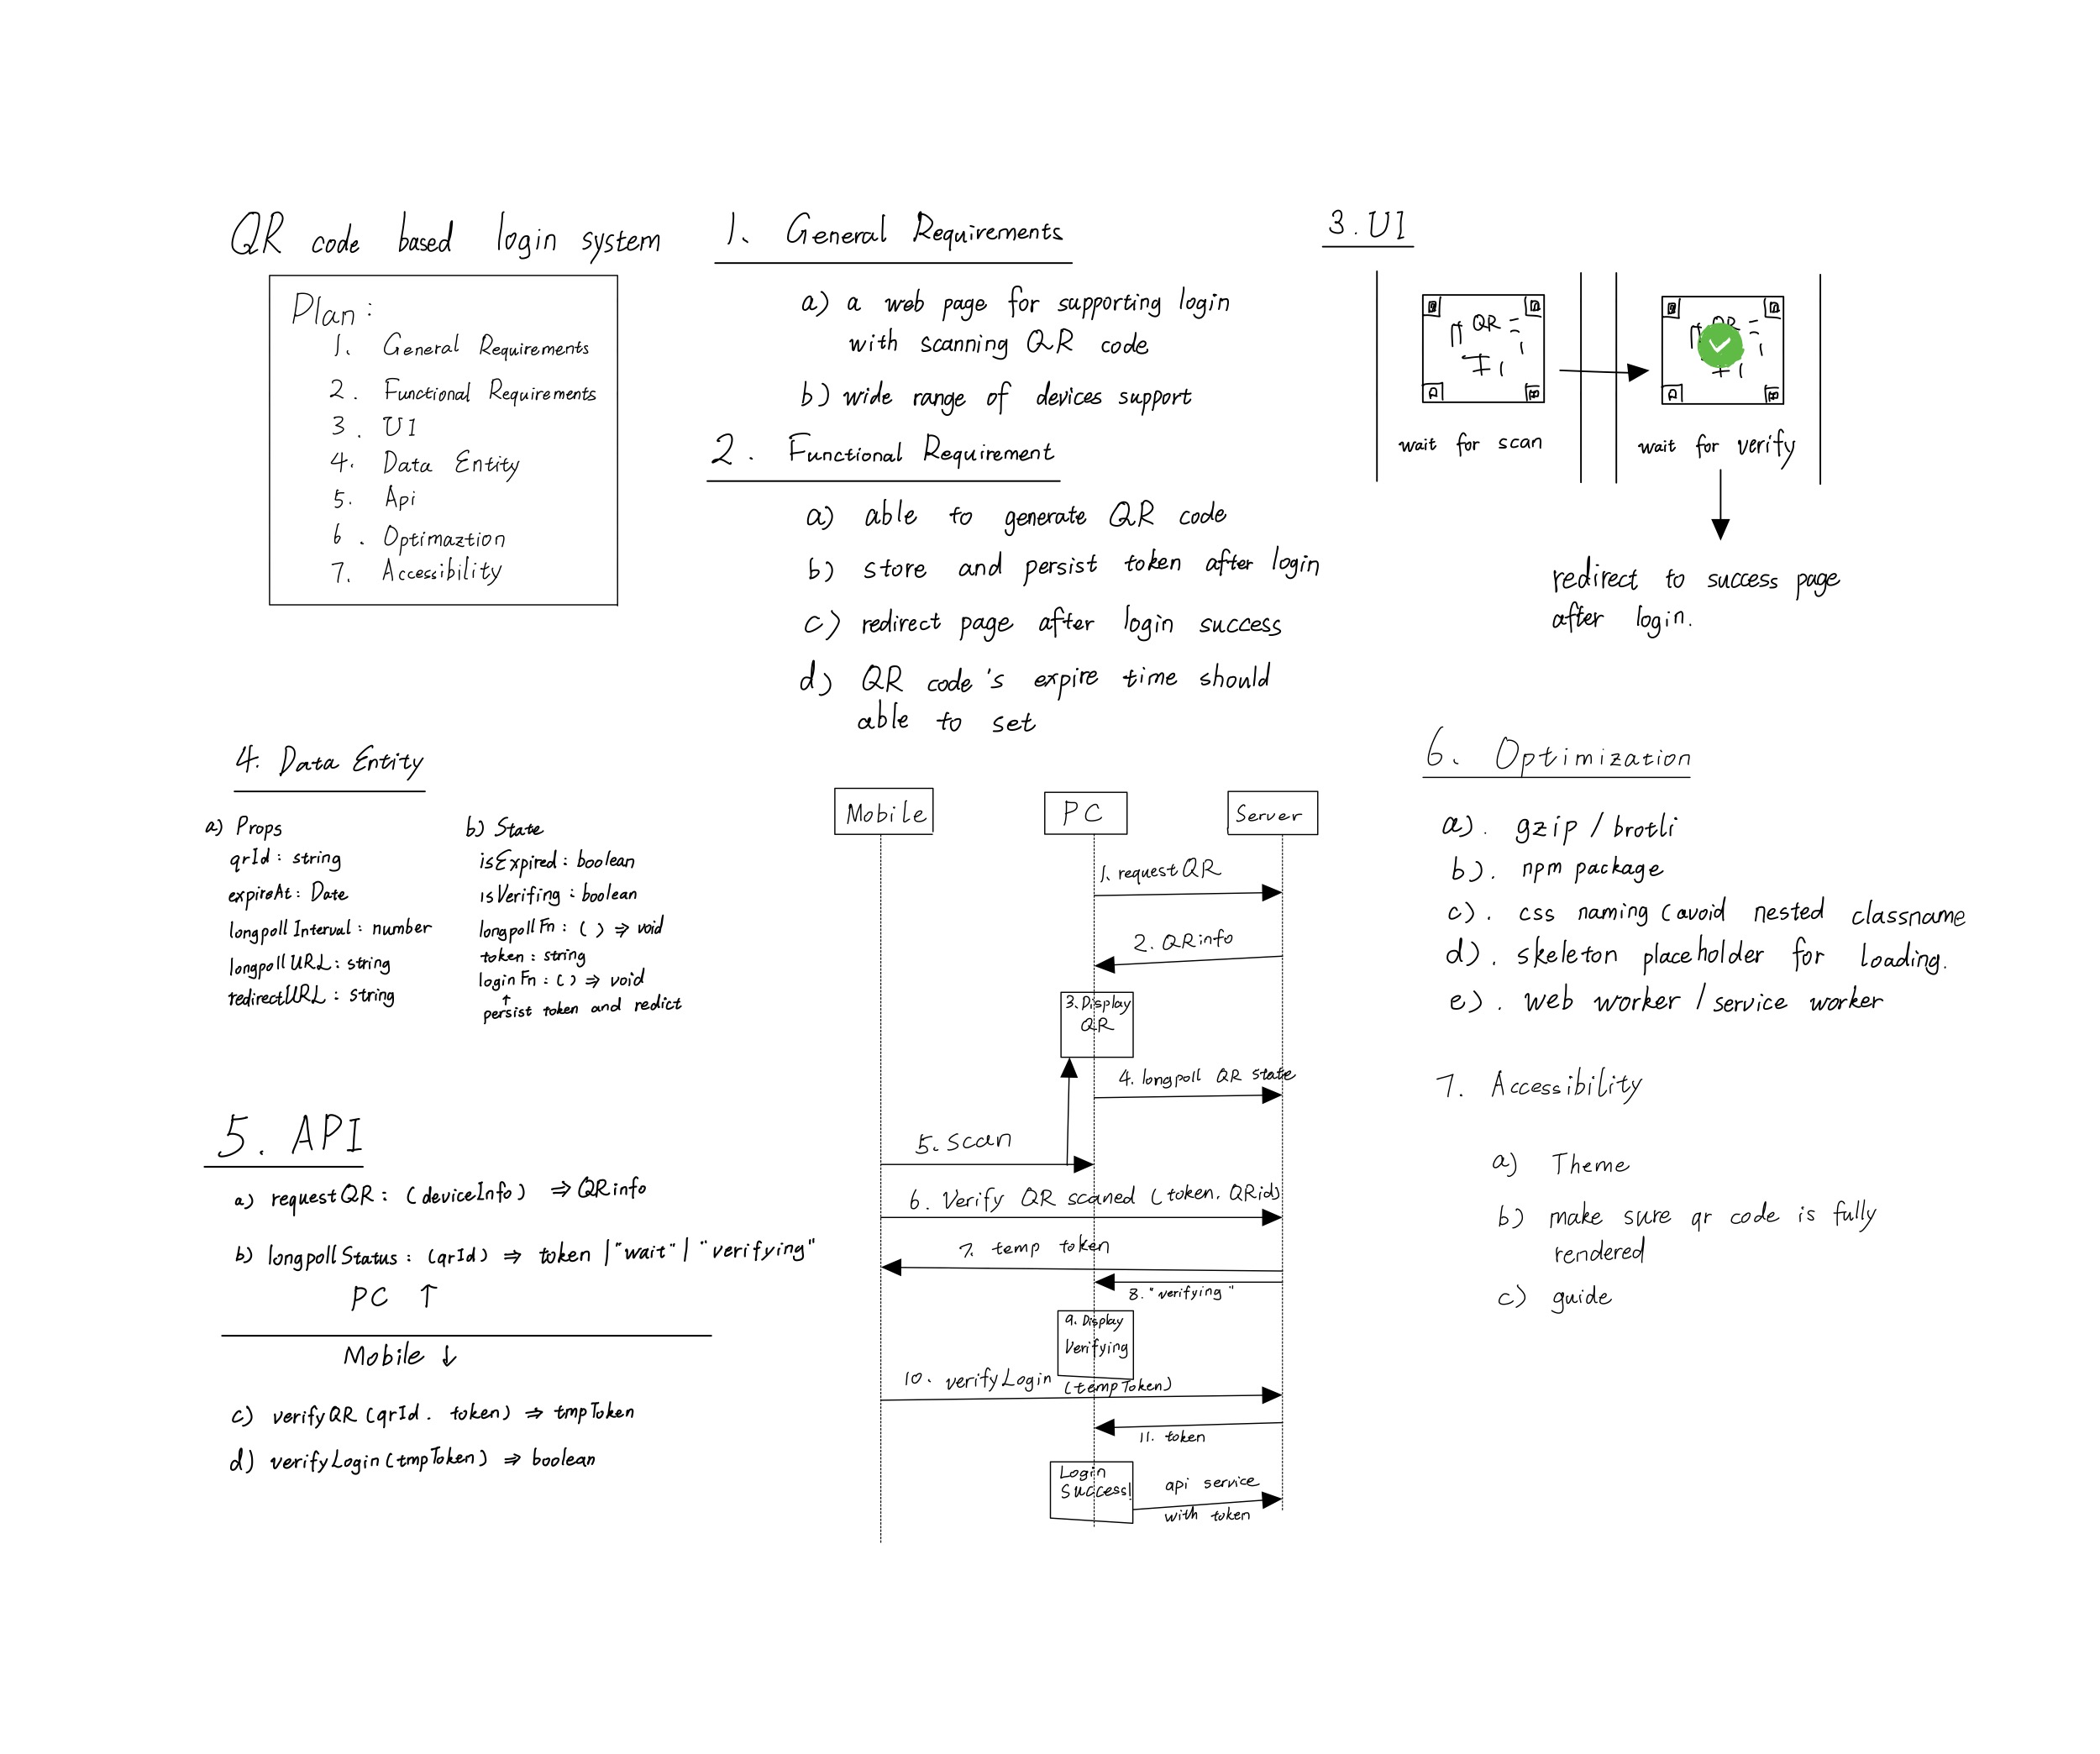 QR code based login system
Plan:
1. General Requirements
2. Functional Requirements
3. UI
4. Data Entity
5. Api
6. Optimaztion
7. Accessibility
1. General Requirements
a) a web page for supporting login
with scanning QR code
b) wide range of devices support
2. Functional Requirement
a) able to generate QR code
b) store and persist token after login
c) redirect page after login success
d) QR code's expire time should
able to set
3. UI
QR
wait for scan
QR
wait for verify
redirect to success page
after login.
4. Data Entity
a) Props
qrId: string
expireAt: Date
longpoll Interval: number
longpoll URL: string
redirectURL: string
b) State
isExpired: boolean
isVerifing: boolean
longpoll Fn: ( ) => void
token: string
login Fn: ( ) => void
↑
persist token and redict
5. API
a) requestQR: (deviceInfo) => QRinfo
b) longpollStatus: (qrId) => token | "wait" | "verifying"
PC ↑
Mobile ↓
c) verifyQR (qrId. token) => tmpToken
d) verifyLogin (tmpToken) => boolean
Mobile
PC
Server
1. requestQR
2. QRinfo
3. Display
QR
4. longpoll QR state
5. Scan
6. Verify QR scaned (token. QRid)
7. temp token
8. "verifying"
9. Display
Verifying
10. verifyLogin (tempToken)
11. token
Login
Success!
api service
with token
6. Optimization
a). gzip / brotli
b). npm package
c). css naming (avoid nested classname
d). skeleton placeholder for loading.
e). web worker / service worker
7. Accessibility
a) Theme
b) make sure qr code is fully
rendered
c) guide